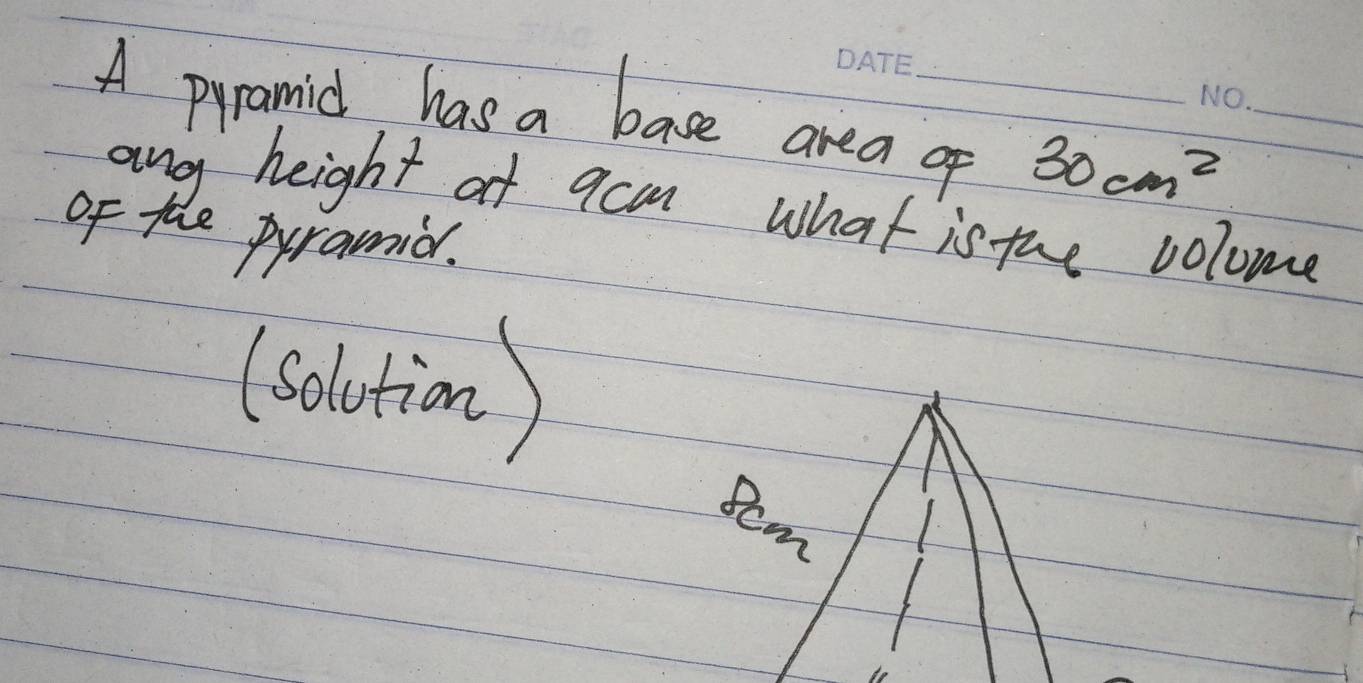 DATE NO.
A pyramid has a base area of 30 cm²
ang height at 9cm what is the volume
of the pyramid.
(Solution)
8cm